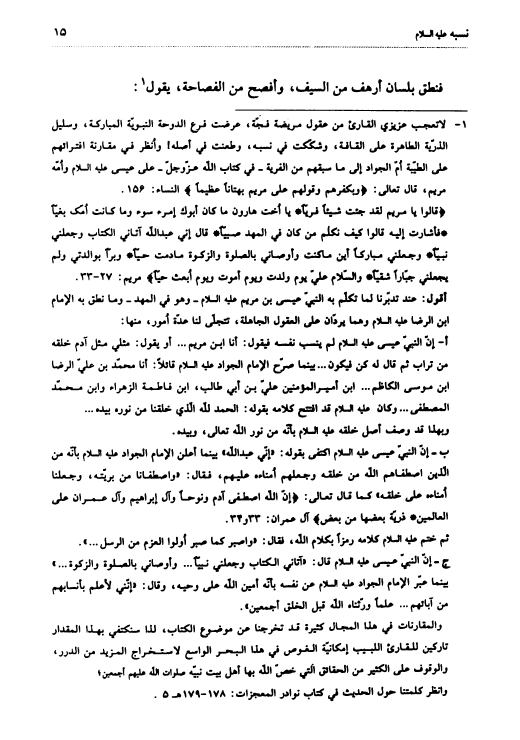 نسبه عليه السلام ١٥
فنطق بلسان أرهف من السيف، وأفصح من الفصاحة، يقول١:
١- لاتعجب عزيزي القارئ من عقول مريضة فجّة، عرضت فرع الدوحة النبويّة المباركة، وسليل
الذريّة الطاهرة على القافة، وشكّكت في نسبه، وطعنت في أصله! وأنظر في مقارنة افترائهم
على الطيّبة أمّ الجواد إلى ما سبقهم من الفرية ـ في كتاب اللّه عزّوجلّ ـ على عيسى عليه السلام وأمّه
مريم، قال تعالى: ﴿وبكفرهم وقولهم على مريم بهتاناً عظيماً ﴾ النساء: ١٥٦.
﴿قالوا يا مريم لقد جئت شيئاً فريّاً* يا أخت هارون ما كان أبوك إمرء سوء وما كانت أمك بغيّاً
*فأشارت إليه قالوا كيف نكلّم من كان في المهد صبيّاً* قال إني عبدالله آتاني الكتاب وجعلني
نبيّاً* وجعلني مباركاً أين ماكنت وأوصاني بالصلوة والزكوة مادمت حيّاً* وبرّاً بوالدتي ولم
يجعلني جبّاراً شقيّاً* والسّلام عليّ يوم ولدت ويوم أموت ويوم أبعث حيّاً﴾ مريم: ٢٧-٣٣.
أقول: عند تدبّرنا لما تكلّم به النبيّ عيسى بن مريم عليه السلام ـ وهو في المهد ـ وما نطق به الإمام
ابن الرضا عليه السلام وهما يردّان على العقول الجاهلة، تتجلّى لنا عدّة أمور، منها:
أ- إنّ النبيّ عيسى عليه السلام لم ينسب نفسه فيقول: أنا ابن مريم... أو يقول: مثلي مثل آدم خلقه
من تراب ثم قال له كن فيكون... بينما صرّح الإمام الجواد عليه السلام قائلاً: أنا محمّد بن عليّ الرضا
ابن موسى الكاظم... ابن أميرالمؤمنين عليّ بن أبي طالب، ابن فاطمة الزهراء وابن محمّد
المصطفى... وكان عليه السلام قد افتتح كلامه بقوله: الحمد للّه الّذي خلقنا من نوره بيده...
وبهذا قد وصف أصل خلقه عليه السلام بأنّه من نور اللّه تعالى، وبيده.
ب ـ إنّ النبيّ عيسى عليه السلام اكتفى بقوله: «إنّي عبدالله» بينما أعلن الإمام الجواد عليه السلام بأنّه من
الّذين اصطفاهم اللّه من خلقه وجعلهم أمناءه عليهم، فقال: «واصطفانا من بريّته، وجعلنا
أمناءه على خلقه» كما قال تعالى: ﴿إنّ اللّه اصطفى آدم ونوحاً وآل إبراهيم وآل عمران على
العالمين* ذريّة بعضها من بعض﴾ آل عمران: ٣٣و٣٤.
ثم ختم عليه السلام كلامه رمزاً بكلام اللّه، فقال: «واصبر كما صبر أولوا العزم من الرسل...».
ج ـ إنّ النبيّ عيسى عليه السلام قال: «آتاني الكتاب وجعلني نبيّاً... وأوصاني بالصلوة والزكوة...»
بينما عبّر الإمام الجواد عليه السلام عن نفسه بأنّه أمين اللّه على وحيه، وقال: «إنّني لأعلم بأنسابهم
من آبائهم... علماً ورثناه اللّه قبل الخلق أجمعين».
والمقارنات في هذا المجال كثيرة قد تخرجنا عن موضوع الكتاب، لذا سنكتفي بهذا المقدار
تاركين للقارئ اللبيب إمكانيّة الغوص في هذا البحر الواسع لاستخراج المزيد من الدرر،
والوقوف على الكثير من الحقائق الّتي خصّ اللّه بها أهل بيت نبيّه صلوات الله عليهم أجمعين؛
وانظر كلمتنا حول الحديث في كتاب نوادر المعجزات: ١٧٨-١٧٩هـ ٥.